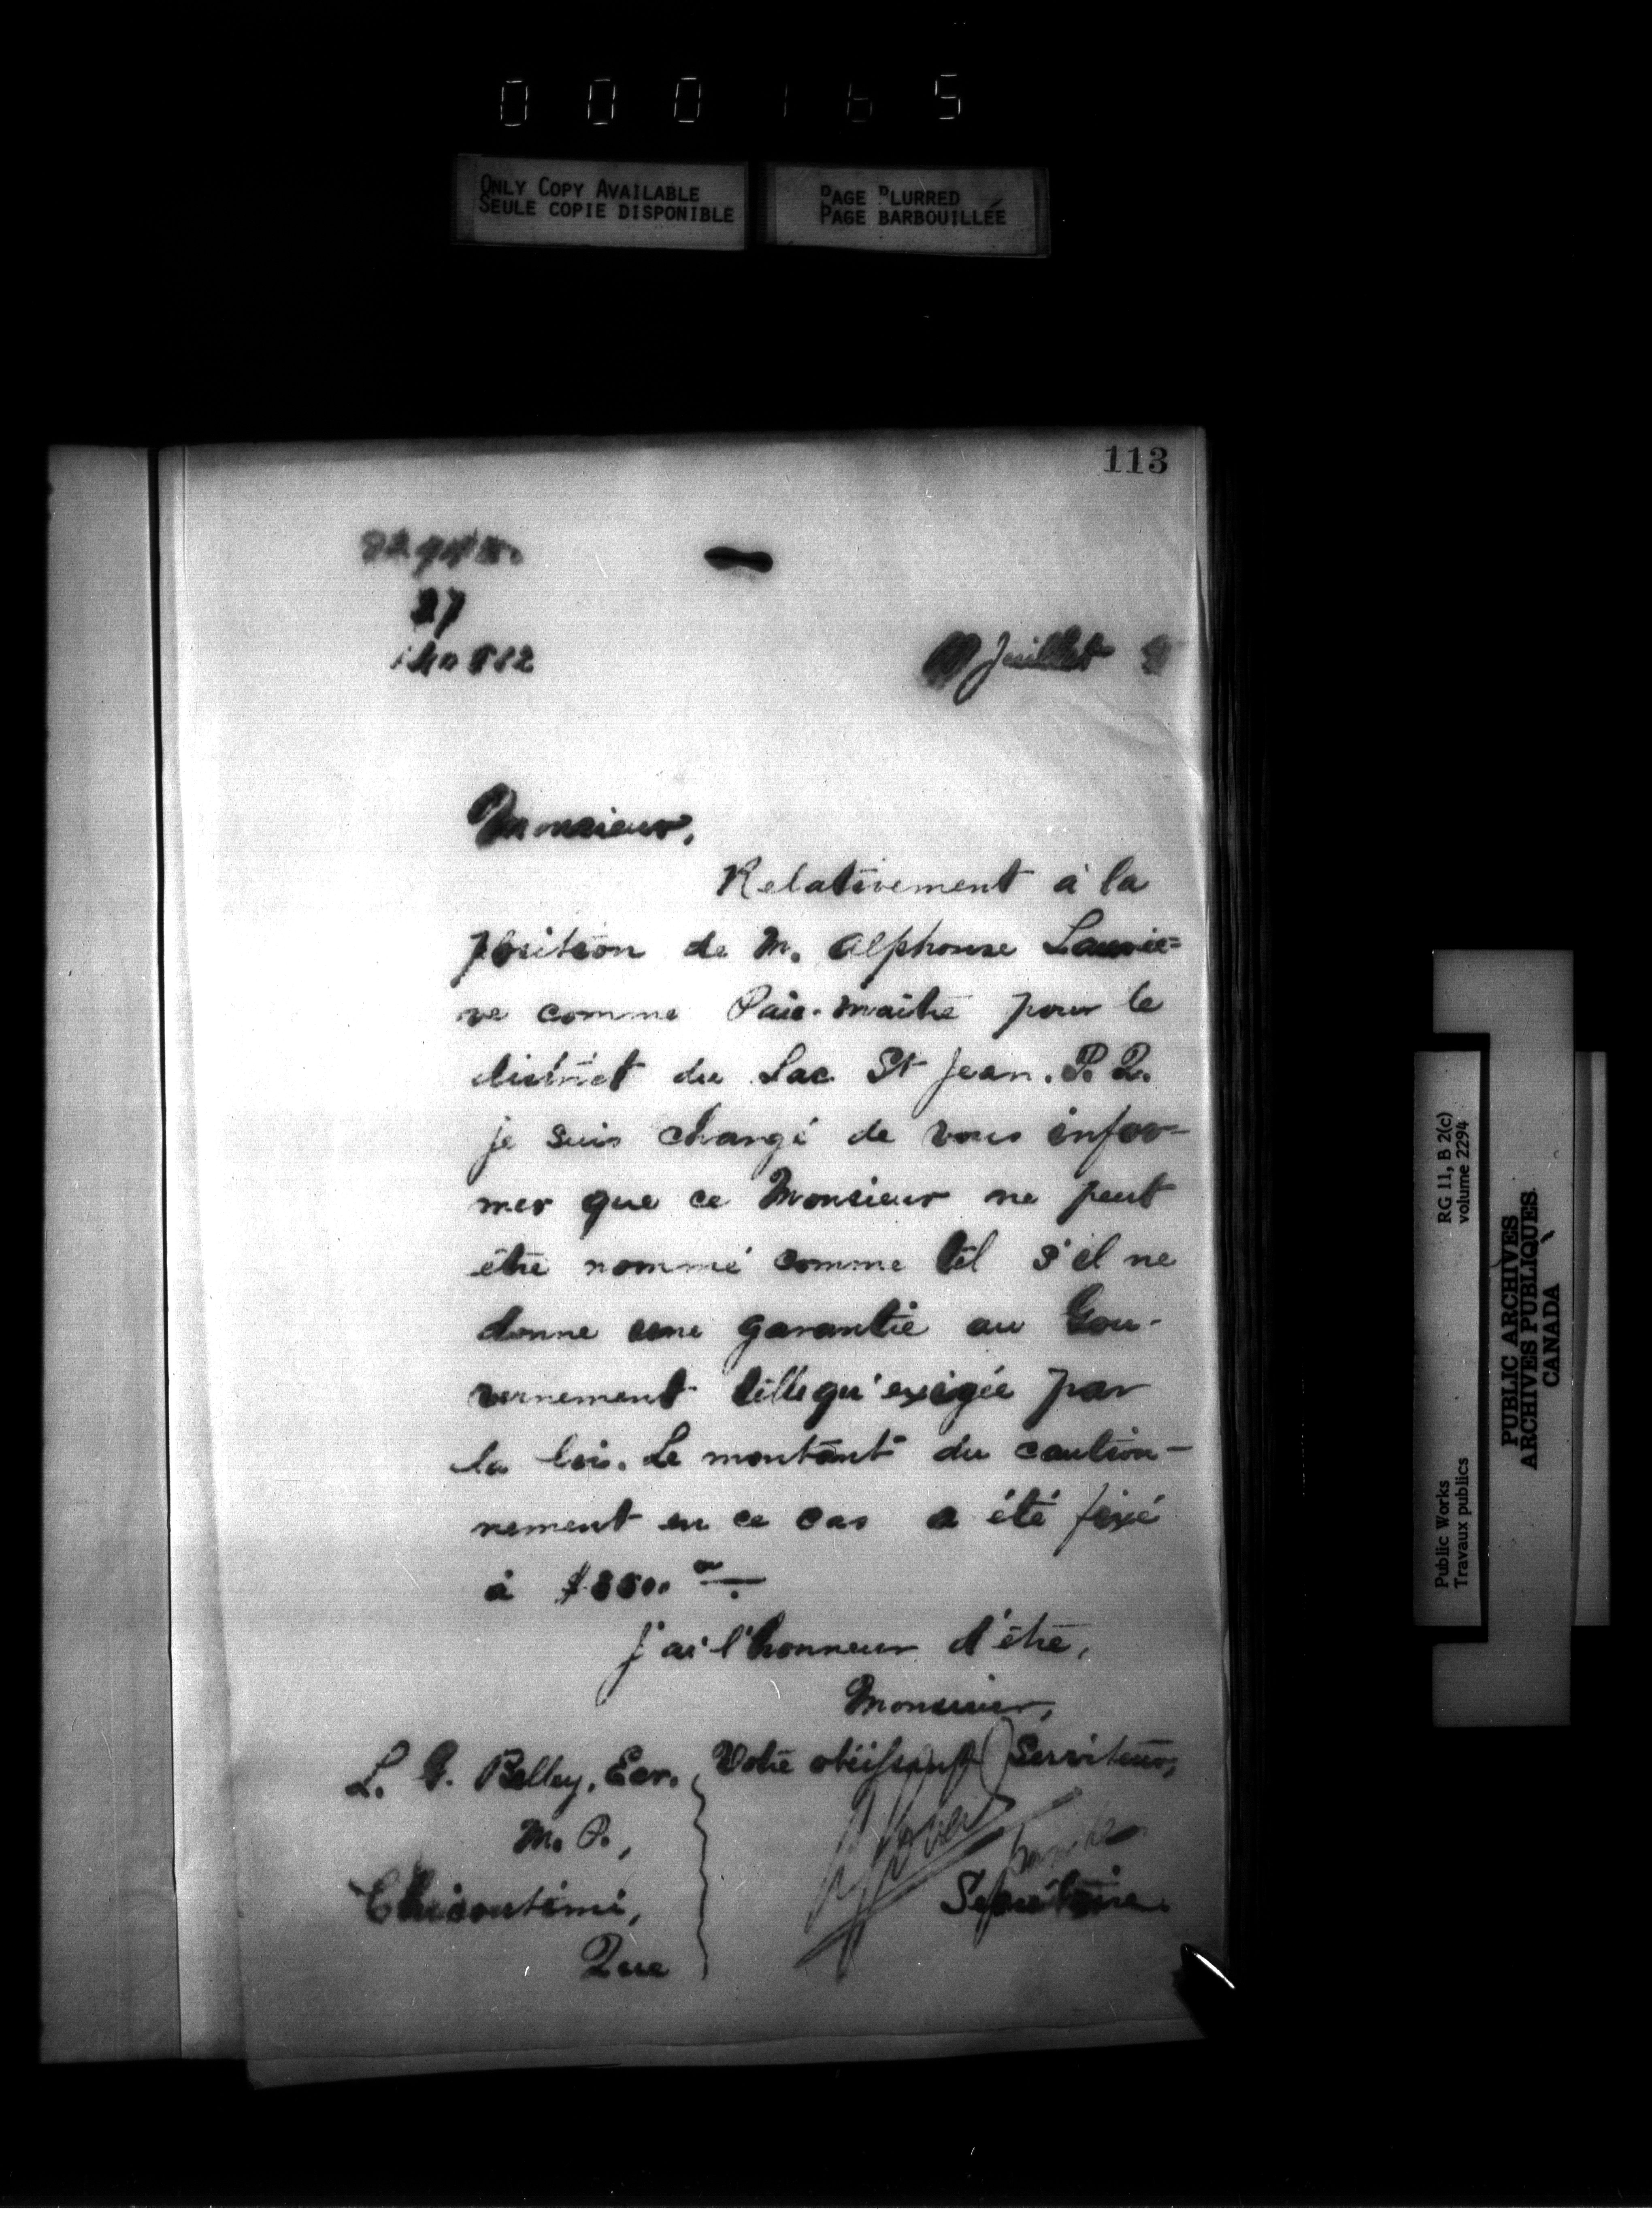 000165
ONLY COPY AVAILABLE
SEULE COPIE DISPONIBLE
PAGE BLURRED
PAGE BARBOUILLÉE
113
27
Juillet
Monsieur,
Relativement à la
position de M. Alphonse
ve comme Paie-maître pour le
district du Lac St Jean. P. Q.
je suis chargé de vous infor-
mer que ce Monsieur ne peut
être nommé comme tel s'il ne
donne une garantie au Gou-
vernement telle qu'exigée par
la loi. Le montant du caution-
nement en ce cas a été fixé
à
J'ai l'honneur d'être,
Monsieur,
Votre obéissant Serviteur,
Secrétaire.
L. G. Belley, Ecr.
M. P.,
Chicoutimi,
Que
Public Works
Travaux publics
RG 11, B 2(c)
volume 2294
PUBLIC ARCHIVES
ARCHIVES PUBLIQUES
CANADA